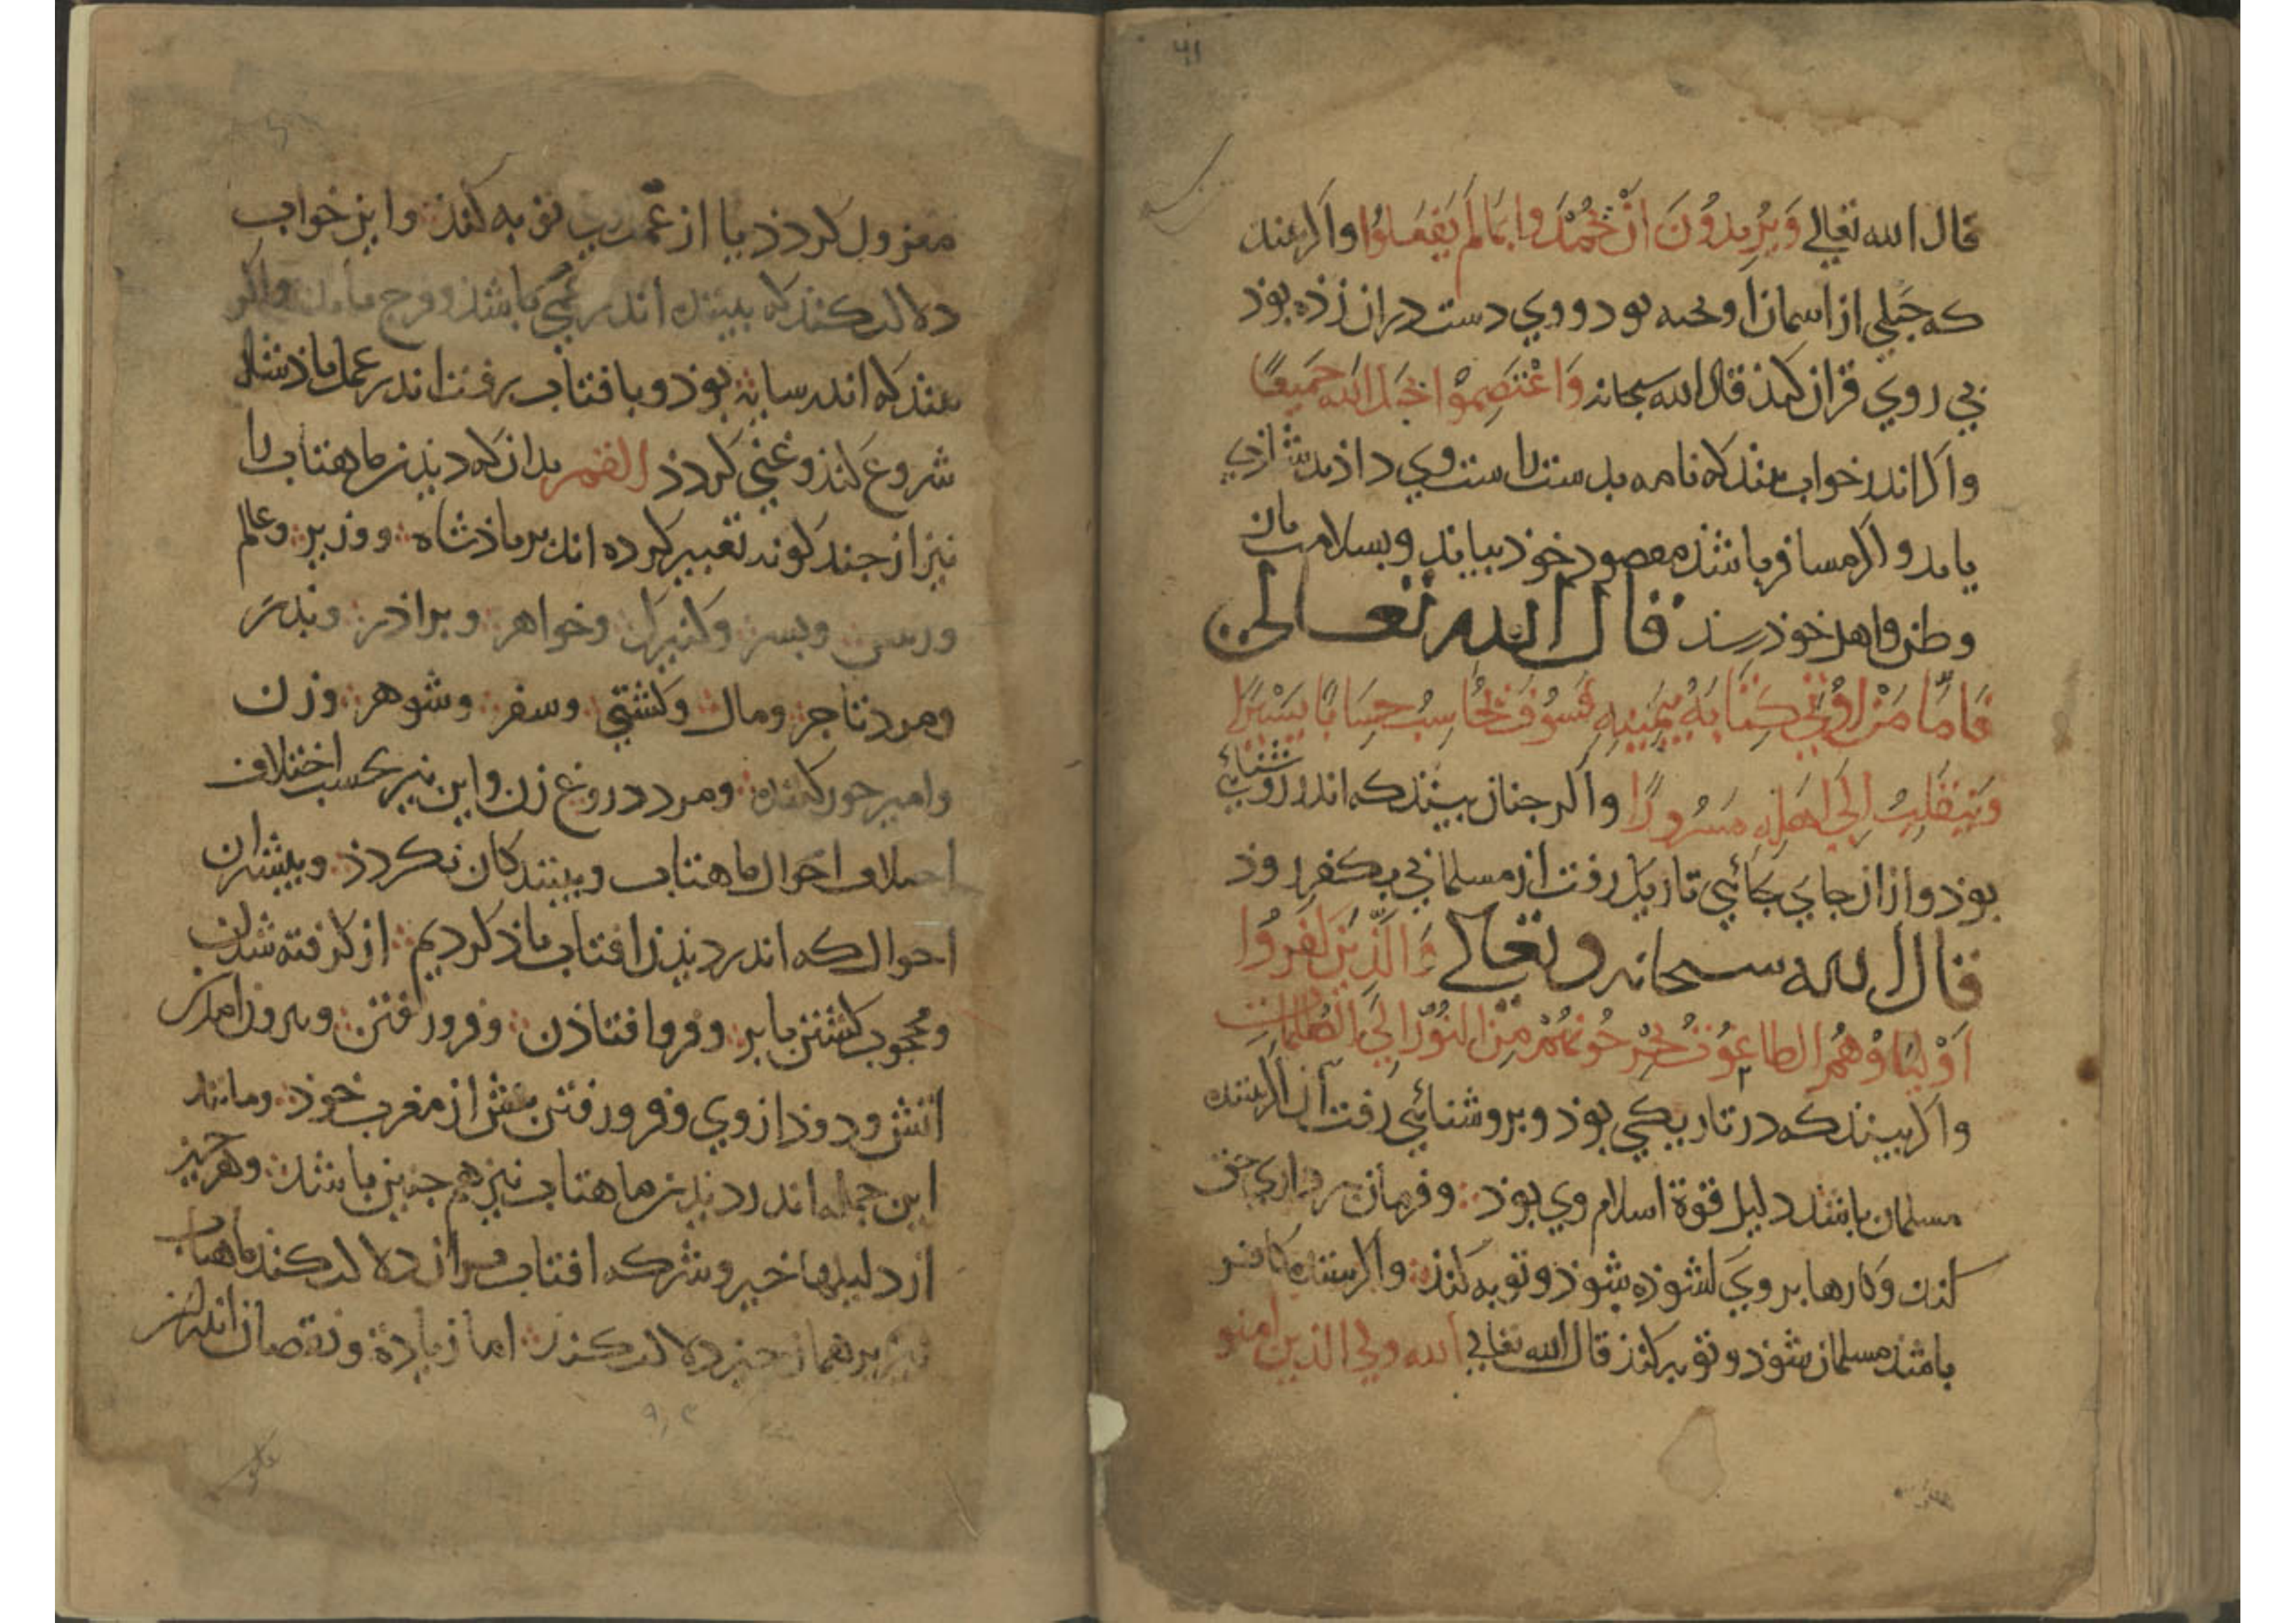 ۴۱
قال الله تعالی وَیُرِیدُونَ اَنْ یُحْمَدُوا بِمَا لَمْ یَفْعَلُوا واکر بیند
که حبلی از اسمان اویخته بود و وی دست دران زذه بوذ
بی روی قران کند قال الله سبحانه وَاعْتَصِمُوا بِحَبْلِ اللهِ جَمِیعًا
واکر اندر خواب بیند که نامه بدست راست وی داذند شاذی
یابد و اکر مسافر باشذ مقصود خوذ بیابد و بسلامت باز
وطن و اهل خوذ رسذ قال الله تعالی
فَاَمَّا مَنْ اُوتِیَ کِتَابَهُ بِیَمِینِهِ فَسَوْفَ یُحَاسَبُ حِسَابًا یَسِیْرًا
وَیَنْقَلِبُ اِلَی اَهْلِهِ مَسْرُورًا واکر جنان بیند که اندر روشنائی
بوذ و ازان جای بجائی تاریک رفت از مسلمانی بکفر روذ
قال الله سبحانه وتعالی وَالَّذِیْنَ کَفَرُوا
اَوْلِیَاؤُهُمُ الطاغُوتُ یُخْرِجُونَهُمْ مِنَ النُّوْرِ اِلَی الظُّلُمَاتِ
واکر بیند که در تاریکی بوذ و بروشنائی رفت آن اکر بیننده
مسلمان باشد دلیل قوة اسلام وی بوذ و فرمان برداری حق
کند و کارها بروی کشوذه شوذ و توبه کند واکر بیننده کافر
باشذ مسلمان شوذ و توبه کند قال الله تعالی الله ولی الذین امنو
معزول کردذ یا از عمل توبه کند واین خواب
دلالت کند که بیننده اندر غمی باشذ و فرج یابد واکر
بیند که اندر سایه بوذ و بافتاب رفت اندر عمل باذشاه
شروع کند و غنی کردذ القمر بدان که دیذن ماهتاب را
نیز از جند کونه تعبیر کرده اند بر باذشاه ووزیر وعالم
وبسر وکنیزک وخواهر وبراذر وبذر
ومرد تاجر ومال وکشتی وسفر وشوهر وزن
وامیر ومرد دروغ زن واین نیز بحسب اختلاف
احوال ماهتاب وبینندکان بکردذ وبیشتر ان
احوال که اندر دیذن افتاب یاذ کردیم از کرفته شدن
ومحجوب کشتن بابر وفرو افتاذن وفرو رفتن وبیرون امدن
اتش ودوذ از وی وفرو رفتن بیش از مغرب خوذ ومانند
این جمله اندر دیذن ماهتاب نیز هم جنین باشد وهر جیز
از دلیلها خیر وشر که افتاب بران دلالت کند ماهتاب
نیز بر همان جیز دلالت کند اما زیادة ونقصان اندر ان